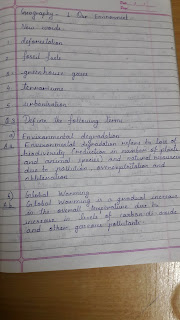 Geography - 1 Our Environment
New words
1 deforestation
2 fossil fuels
3 greenhouse gases
4
5 urbanisation
Q.1 Define the following terms.
a) Environmental degradation
Ans Environmental degradation refers to loss of
biodiversity (reduction in number of plant
and animal species) and natural resources
due to pollution, overexploitation and
obliteration
b) Global Warming
Ans Global Warming is a gradual increase
in the overall temperature due to
increase in levels of carbon di oxide
and other gaseous pollutants.